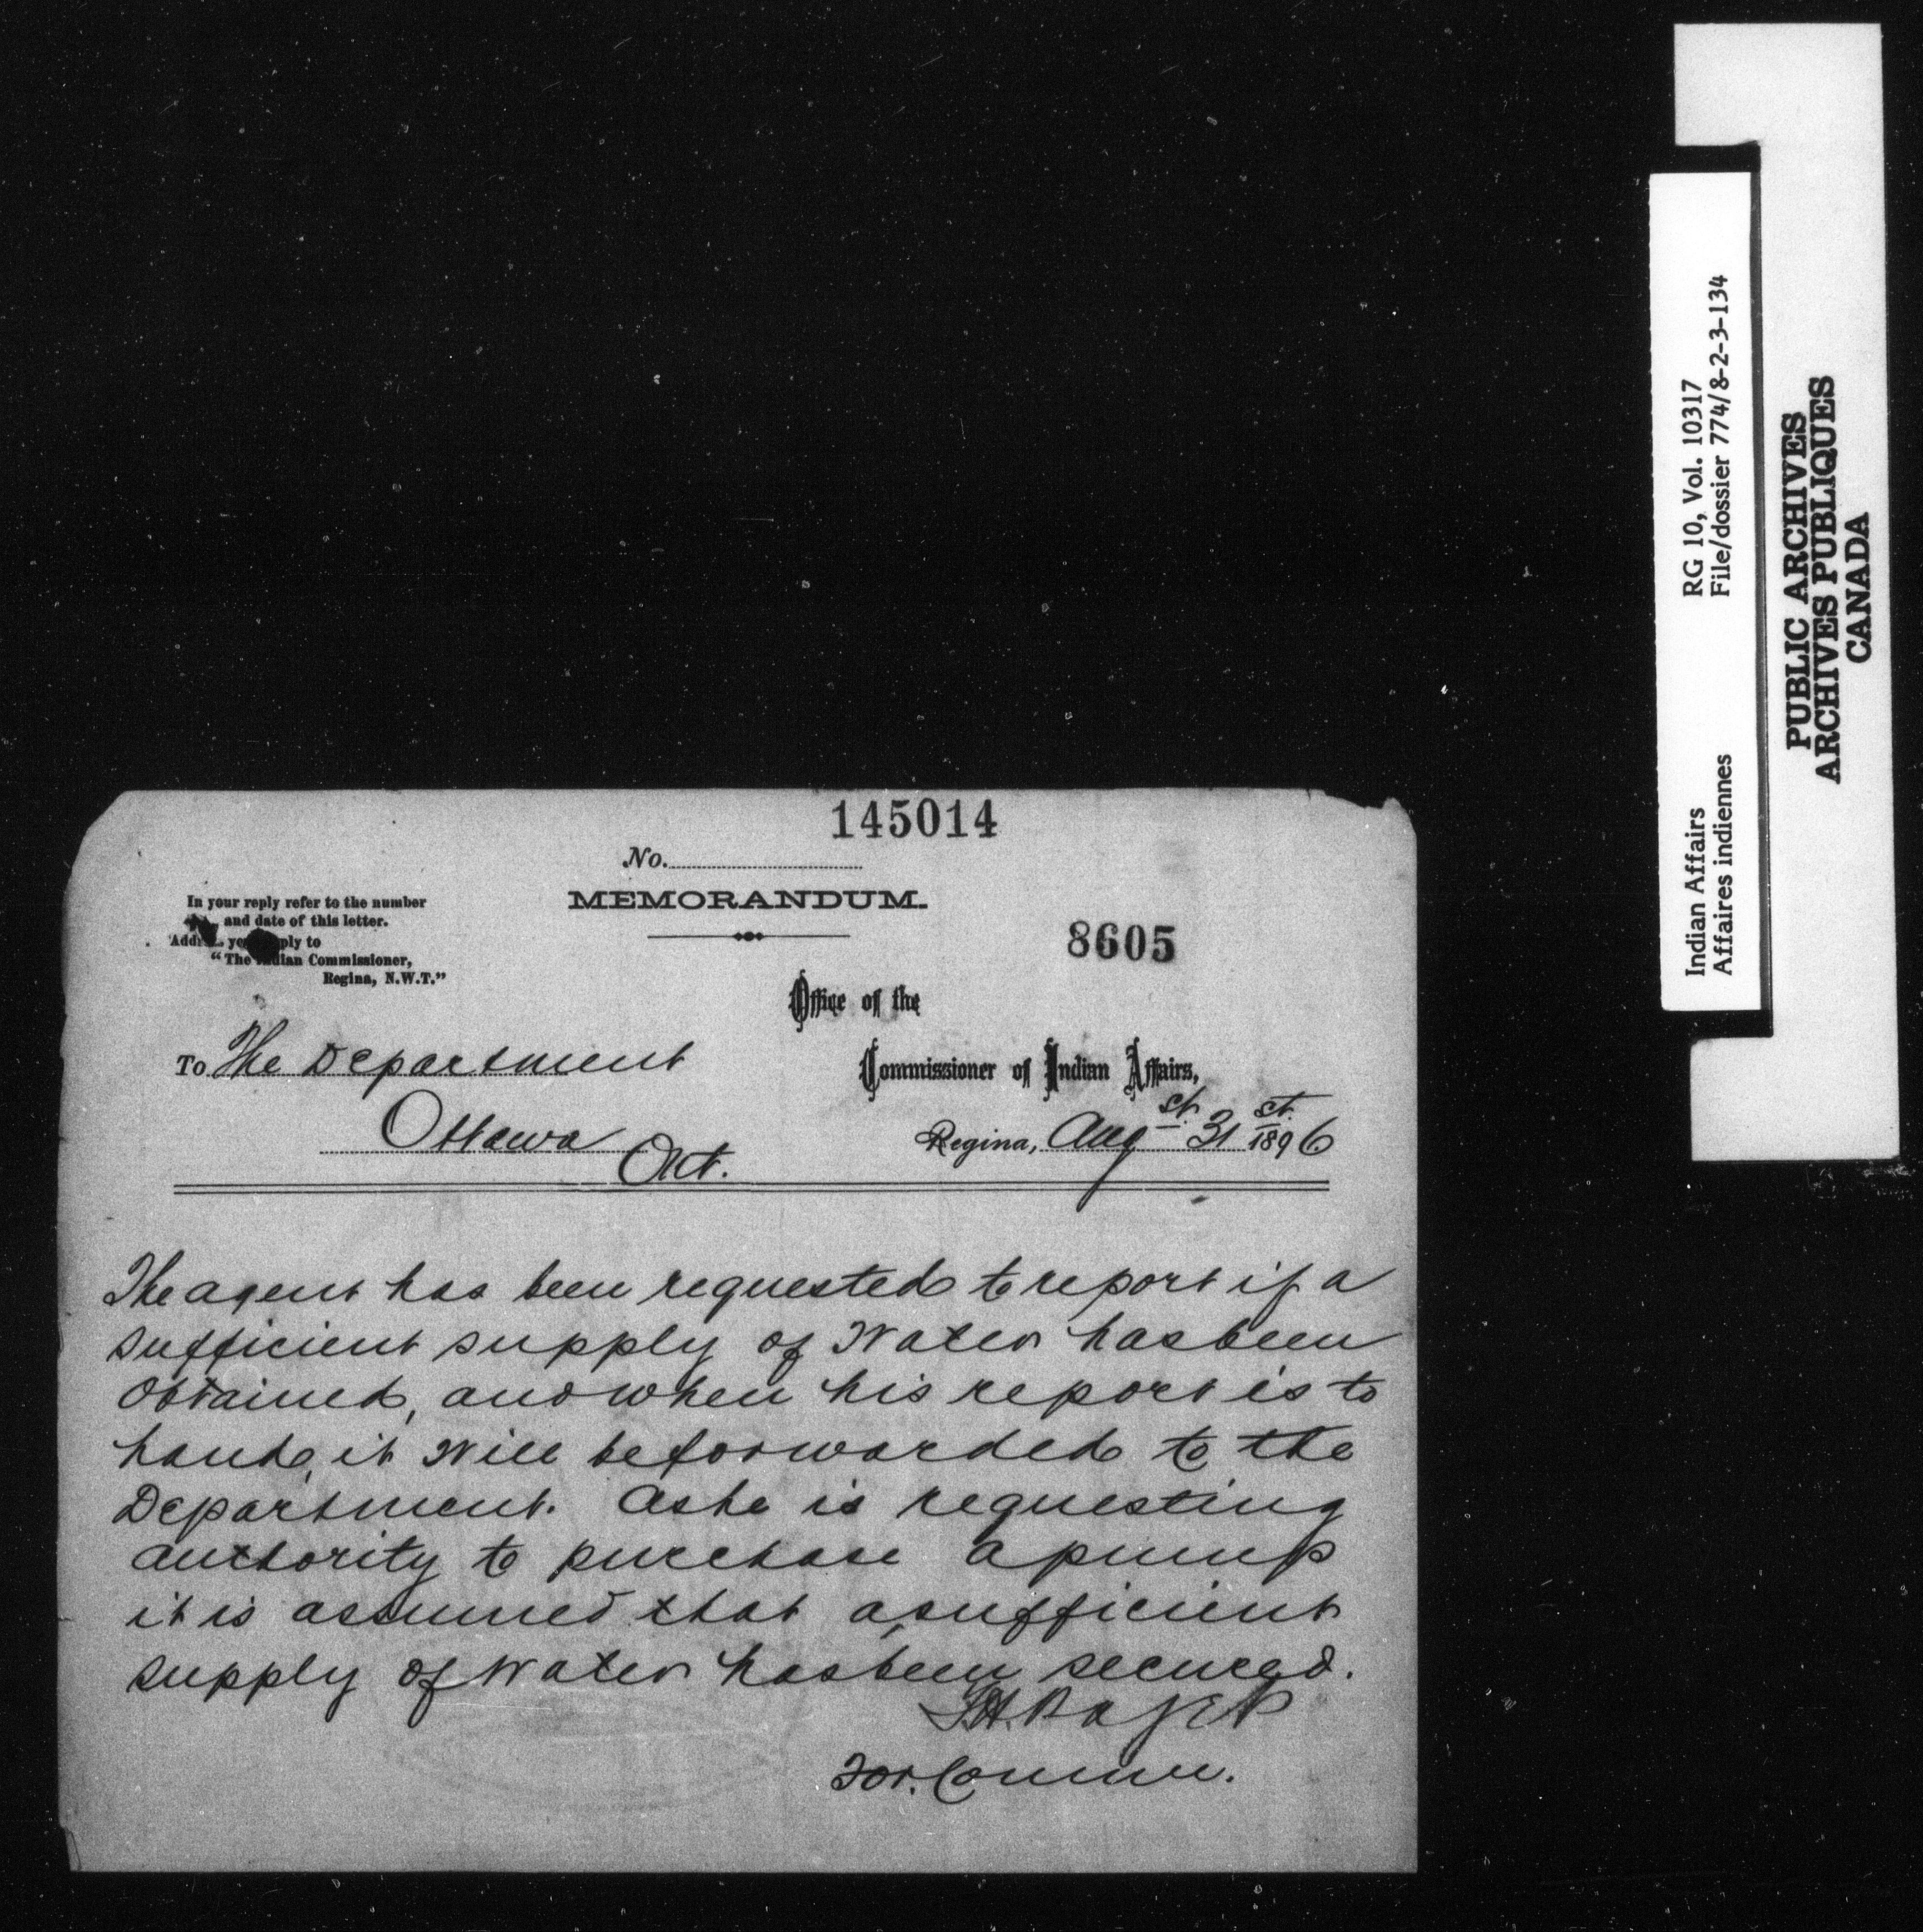 145014
No.
MEMORANDUM.
In your reply refer to the number
and date of this letter.
Addr yo ply to
"The Indian Commissioner,
Regina, N.W.T."
8605
Office of the
Commissioner of Indian Affairs,
To The Department
Ottawa
Ont.
Regina, Augst. 31st. 1896
The agent has been requested to report if a
sufficient supply of Water has been
obtained, and when his report is to
hand, it Will be forwarded to the
Department. As he is requesting
authority to purchase a pump
it is assumed that a sufficient
supply of Water has been secured.
For. Commr.
Indian Affairs
Affaires indiennes
RG 10, Vol. 10317
File/dossier 774/8-2-3-134
PUBLIC ARCHIVES
ARCHIVES PUBLIQUES
CANADA